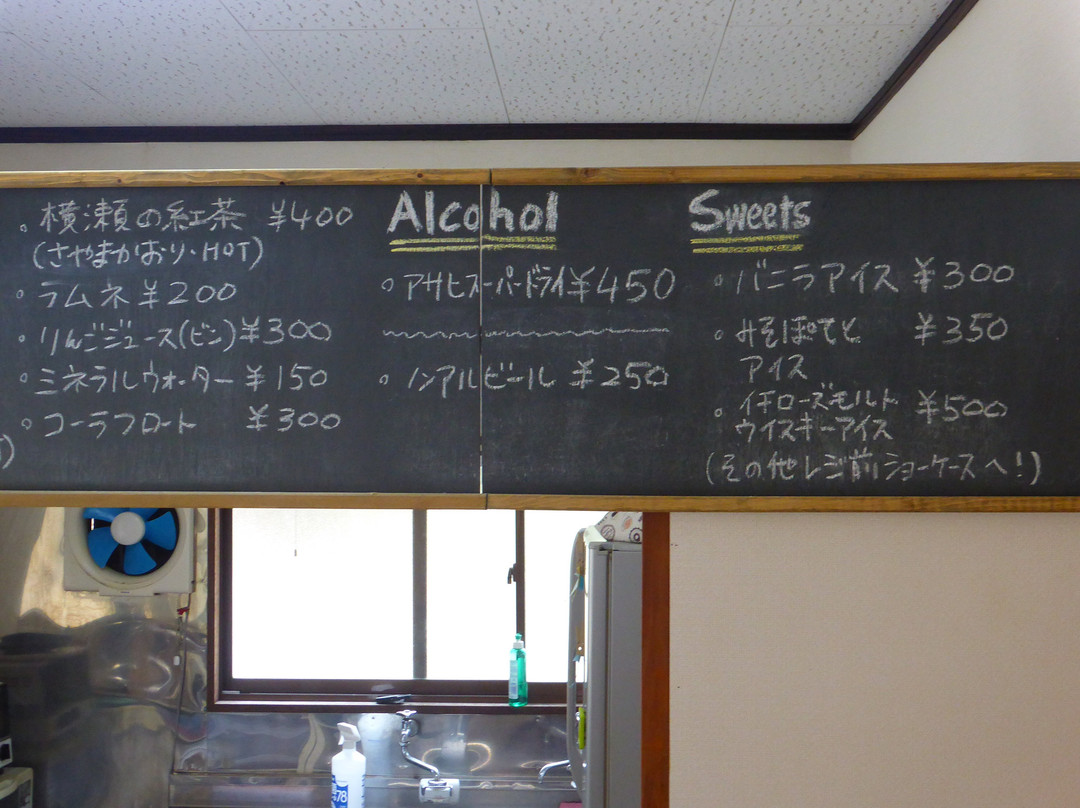 。横瀬の紅茶 ¥400
(さやまかおり・HOT)
。ラムネ ¥200
。りんごジュース(ビン) ¥300
。ミネラルウォーター ¥150
。コーラフロート ¥300
)
Alcohol
。アサヒスーパードライ ¥450
。ノンアルビール ¥250
Sweets
。バニラアイス ¥300
。みそぽてと ¥350
アイス
。イチローズモルト ¥500
ウイスキーアイス
(その他レジ前ショーケースへ!)
78